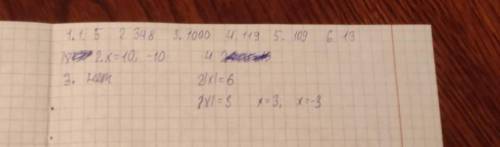 1. 1, 5 2. 348 3. 1000 4. 119 5. 109 6. 13
2. x=10, -10 4.
3. нет
2|x|=6
|x|=3 x=3, x=-3